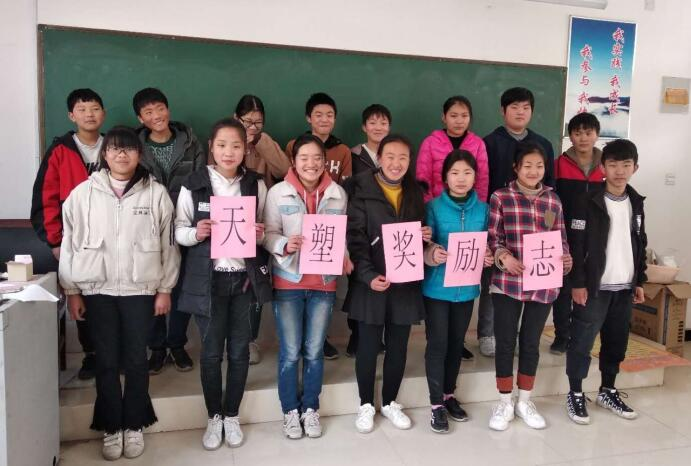 我实践 我成长
我参与 我
天塑奖励志
Love